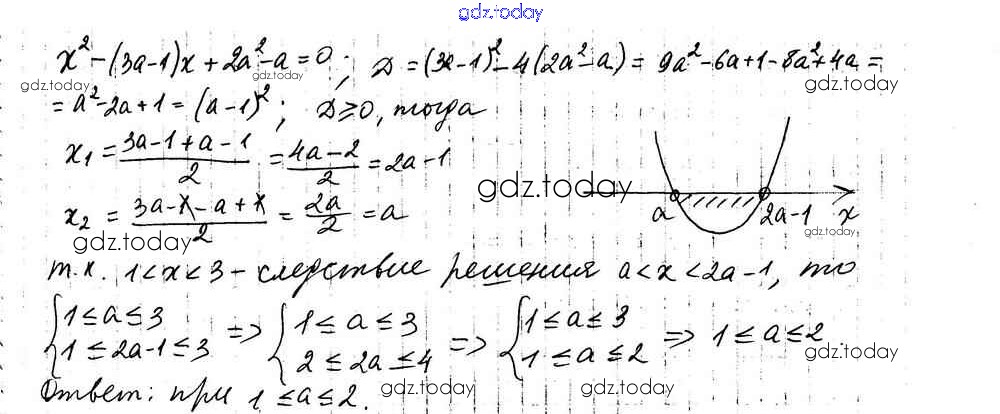 gdz.today
x² - (3a-1)x + 2a² - a = 0; D = (3x-1)² - 4(2a²-a) = 9a² - 6a + 1 - 8a² + 4a =
gdz.today gdz.today gdz.today
= a² - 2a + 1 = (a-1)²; D ≥ 0, тогда
x₁ = (3a-1+a-1)/2 = (4a-2)/2 = 2a-1
gdz.today
x₂ = (3a-1-a+1)/2 = 2a/2 = a
a 2a-1 x
gdz.today gdz.today
т.к. 1<x<3 - следствие решения a<x<2a-1, то
{1≤a≤3 => {1≤a≤3 => {1≤a≤3 => 1≤a≤2.
1≤2a-1≤3 2≤2a≤4 1≤a≤2
gdz.today
Ответ: при 1≤a≤2.
gdz.today gdz.today gdz.today